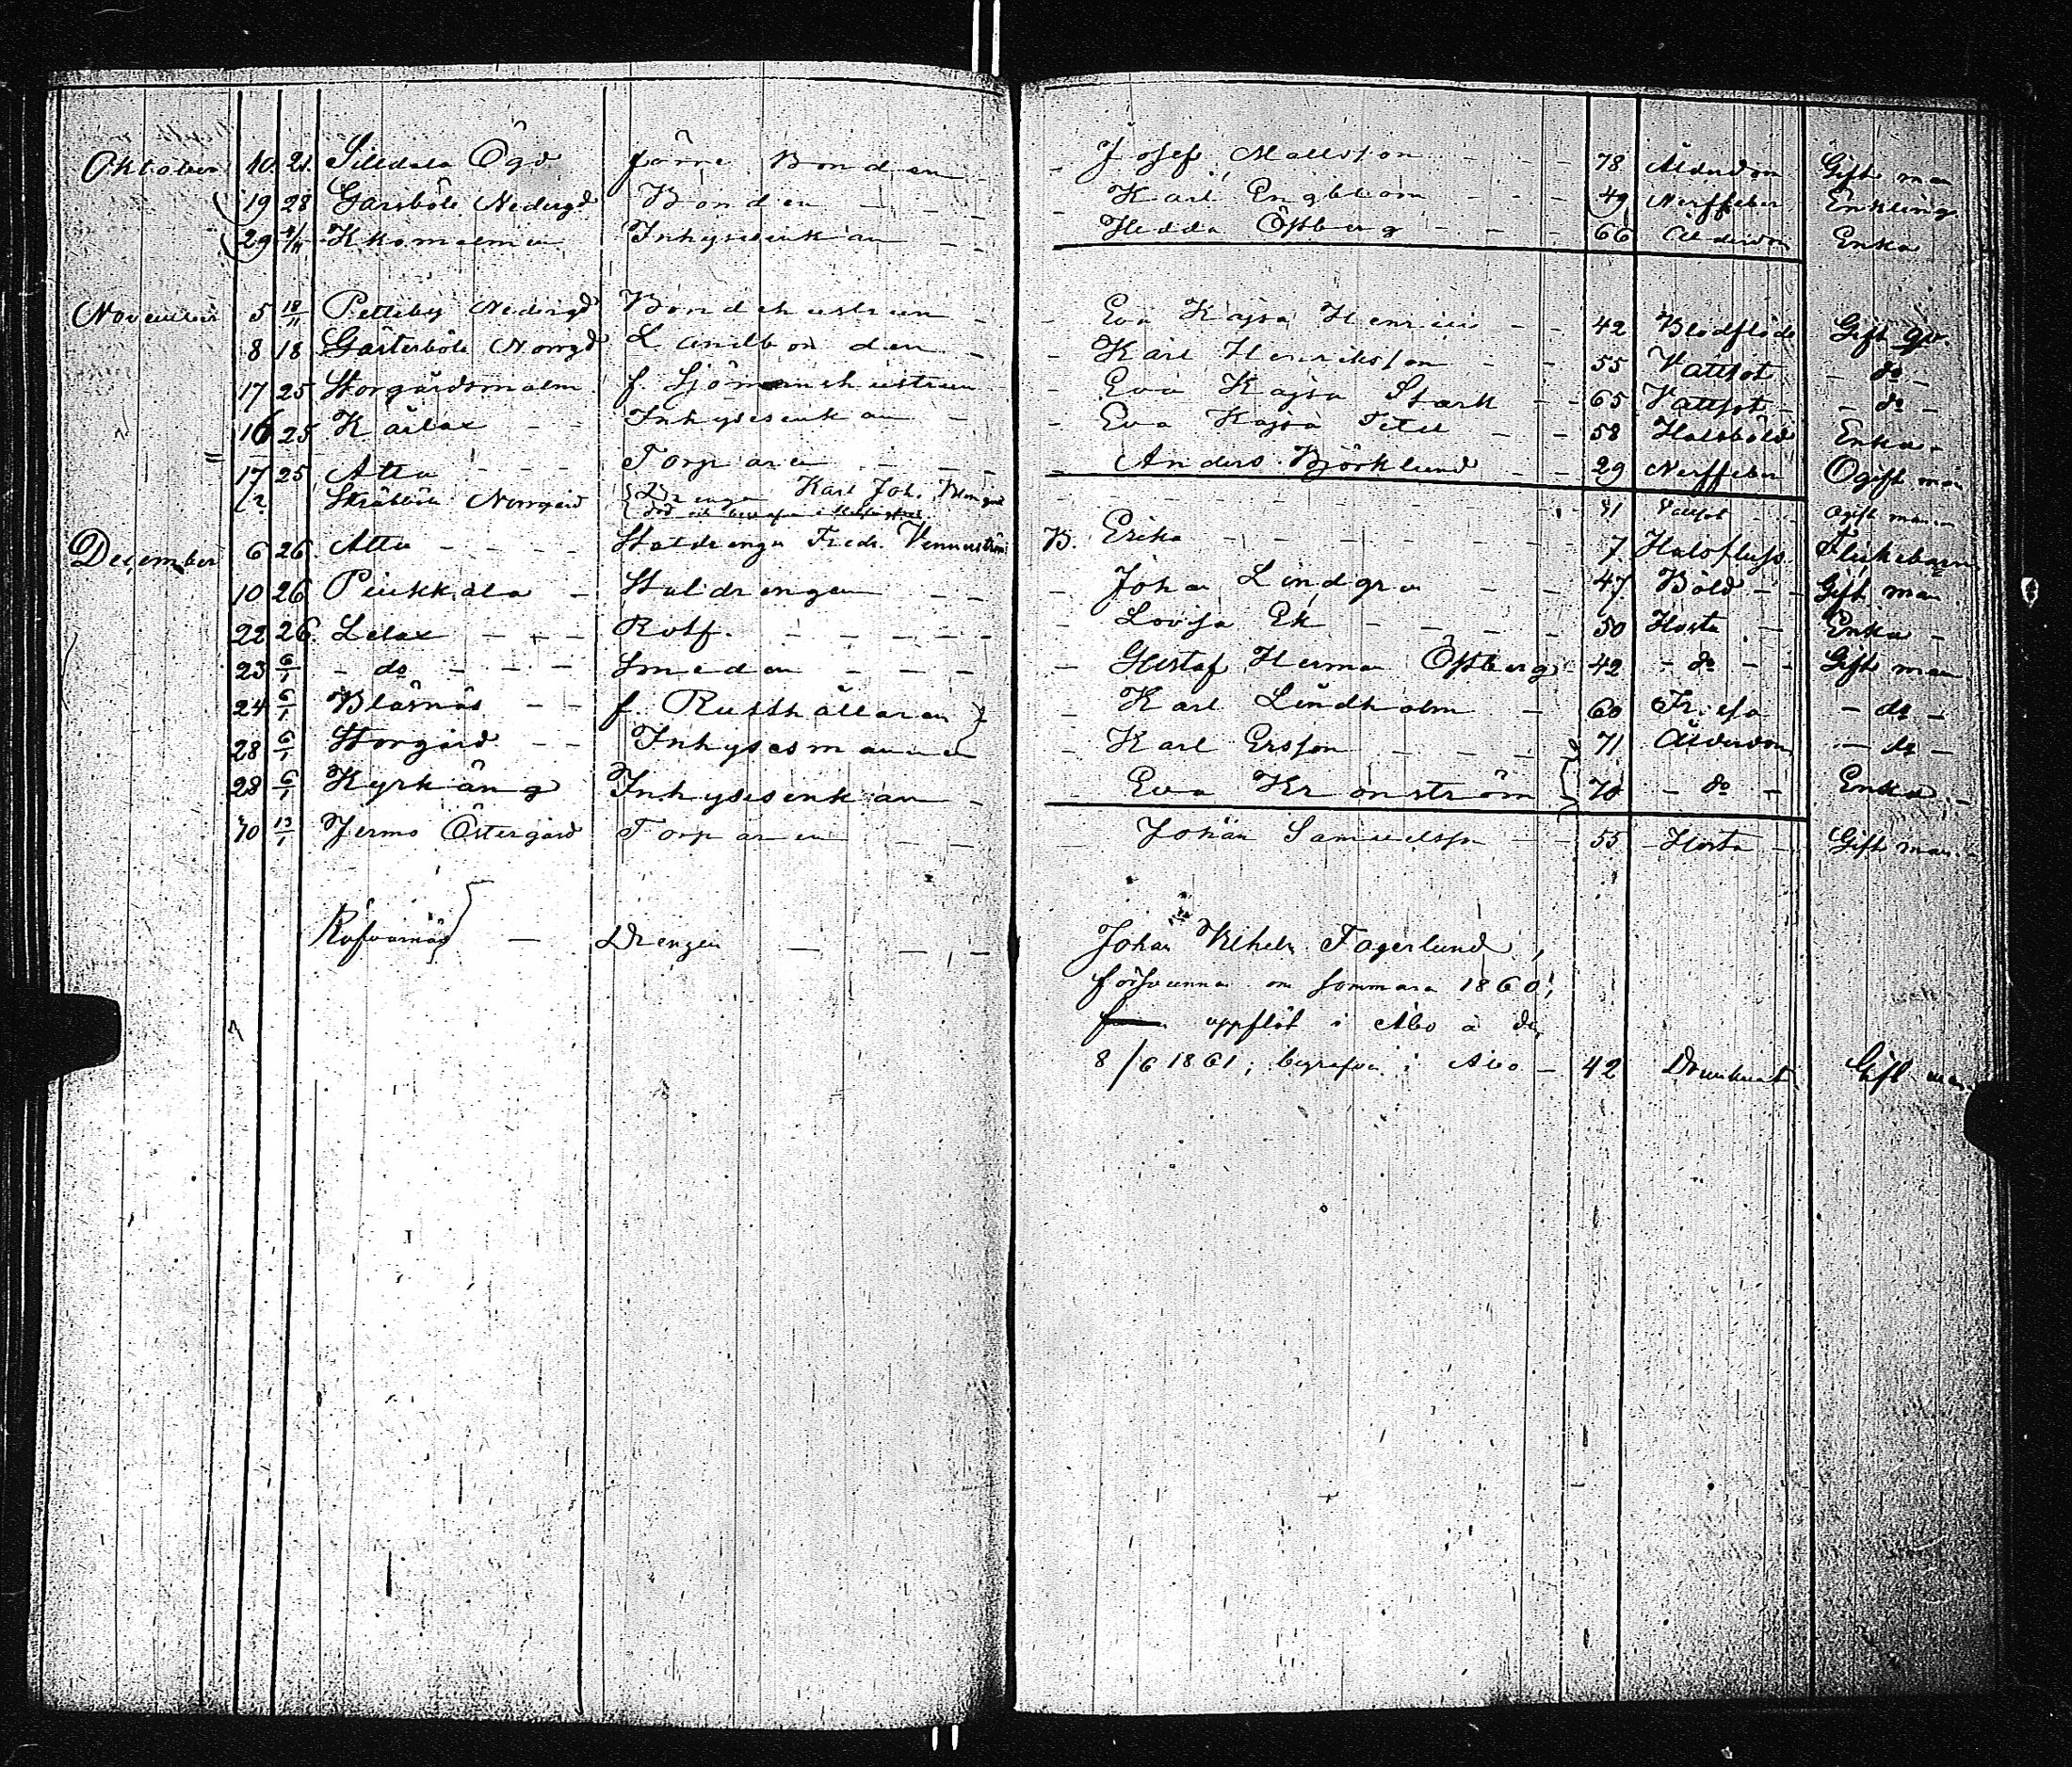 Oktober 10. 21. Silldala Ögd förre Bonden - Josef Mattsson - - - 78 Ålderdom Gift man
19 28 Garsböle Nedergd Bonden - - - Karl Engblom - - - 49 Nerffeber Enkling
29 Inhysesenkan - - Hedda Östberg - - - 66 Ålderdom Enka
November 5 18/11 Petteby Nedergd Bondehustrun - - Eva Kajsa Henriks - - 42 Blodflöde Gift qv.
8 18 Gästerböle Norrgd Landbonden - - Karl Henriksson - - 55 Vattsot - do -
17 25 Storgårdsmalm f. Sjömanshustrun - Eva Kajsa Stark - - 65 Vattsot - - do -
16 25 Kärlax - - Inhysesenkan - - Eva Kajsa - - 58 Halsböld Enka -
17 25 Attu - - - Torparen - - - Anders Björklund - - 29 Nerffeber Ogift man
Norrgård Drengen Karl Joh. Vattsot Ogift man
December 6 26. Attu - - - - Statdrengen Fredr. Vennerström B. Erika - - - - - 7. Halsfluss Flickebarn
10 26 Piukkala - Staldrengen - - - Johan Lindgren - - 47 Böld - - Gift man
22 26. Lelax - - - Rotf. - - - - - Lovisa Ek - - - - - 50 Hosta - - Enka -
23 6/1 - do - - - Smeden - - - - Gustaf Herman Östberg - 42 - do - - Gift man
24 6/1 Blåsnäs - - f. Rusthållaren - Karl Lindholm - 60 - do -
28 6/1 Storgård - - Inhysesmannen - Karl Ersson - - - 71 Ålderdom - do -
28 6/1 Kyrkäng Inhysesenkan - Eva Kronström 70 - do - Enka. -
13/1 Jermo Östergård Torparen - - - Johan Samuelsson - - 55 - Hosta - Gift man
Rafvarnäs - Drengen - - - Johan Vilhelm Fagerlund,
försvunnen om sommaren 1860;
uppflöt i Åbo å den
8/6 1861; begrafven i Åbo - 42 Drunknat. Gift man